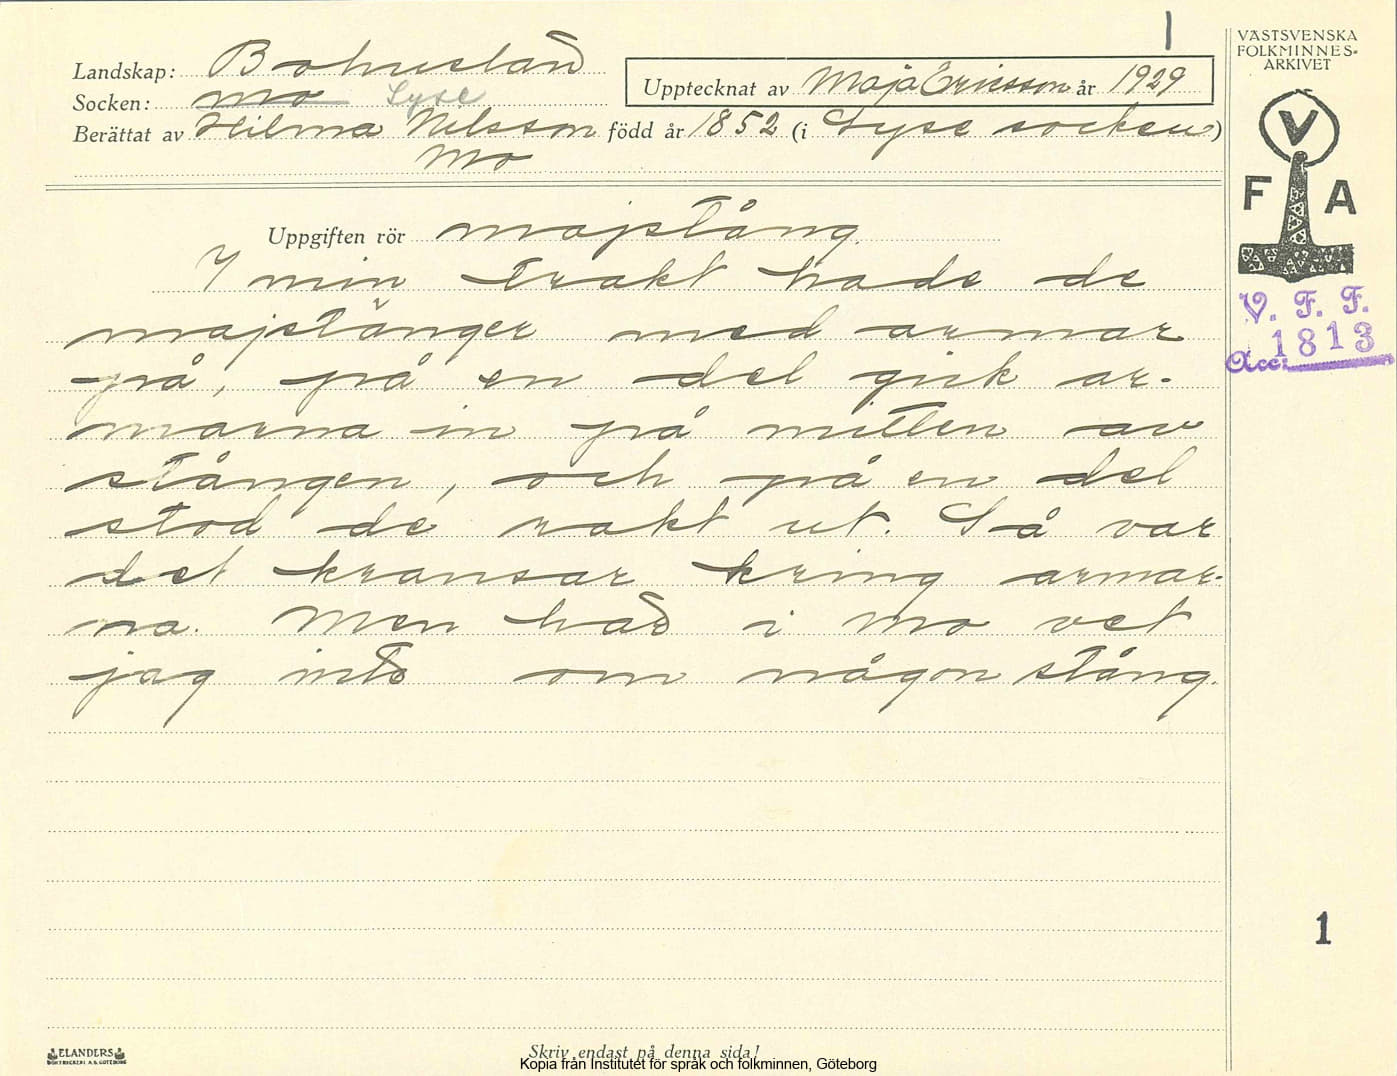 1
Landskap: Bohuslän
Socken: Mo Lyse
Upptecknat av Maja Ericsson år 1929
Berättat av Hilma Nilsson född år 1852 (i Lyse socken)
Mo
VÄSTSVENSKA
FOLKMINNES-
ARKIVET
V
F A
V. F. F.
Acc: 1813
Uppgiften rör majstång.
I min trakt hade de
majstänger med armar
på, på en del gick ar-
marna in på mitten av
stången, och på en del
stod de rakt ut. Så var
det kransar kring armar-
na. Men här i Mo vet
jag inte om någon stång.
1
ELANDERS
BOKTRYCKERI A.B. GÖTEBORG
Skriv endast på denna sida!
Kopia från Institutet för språk och folkminnen, Göteborg